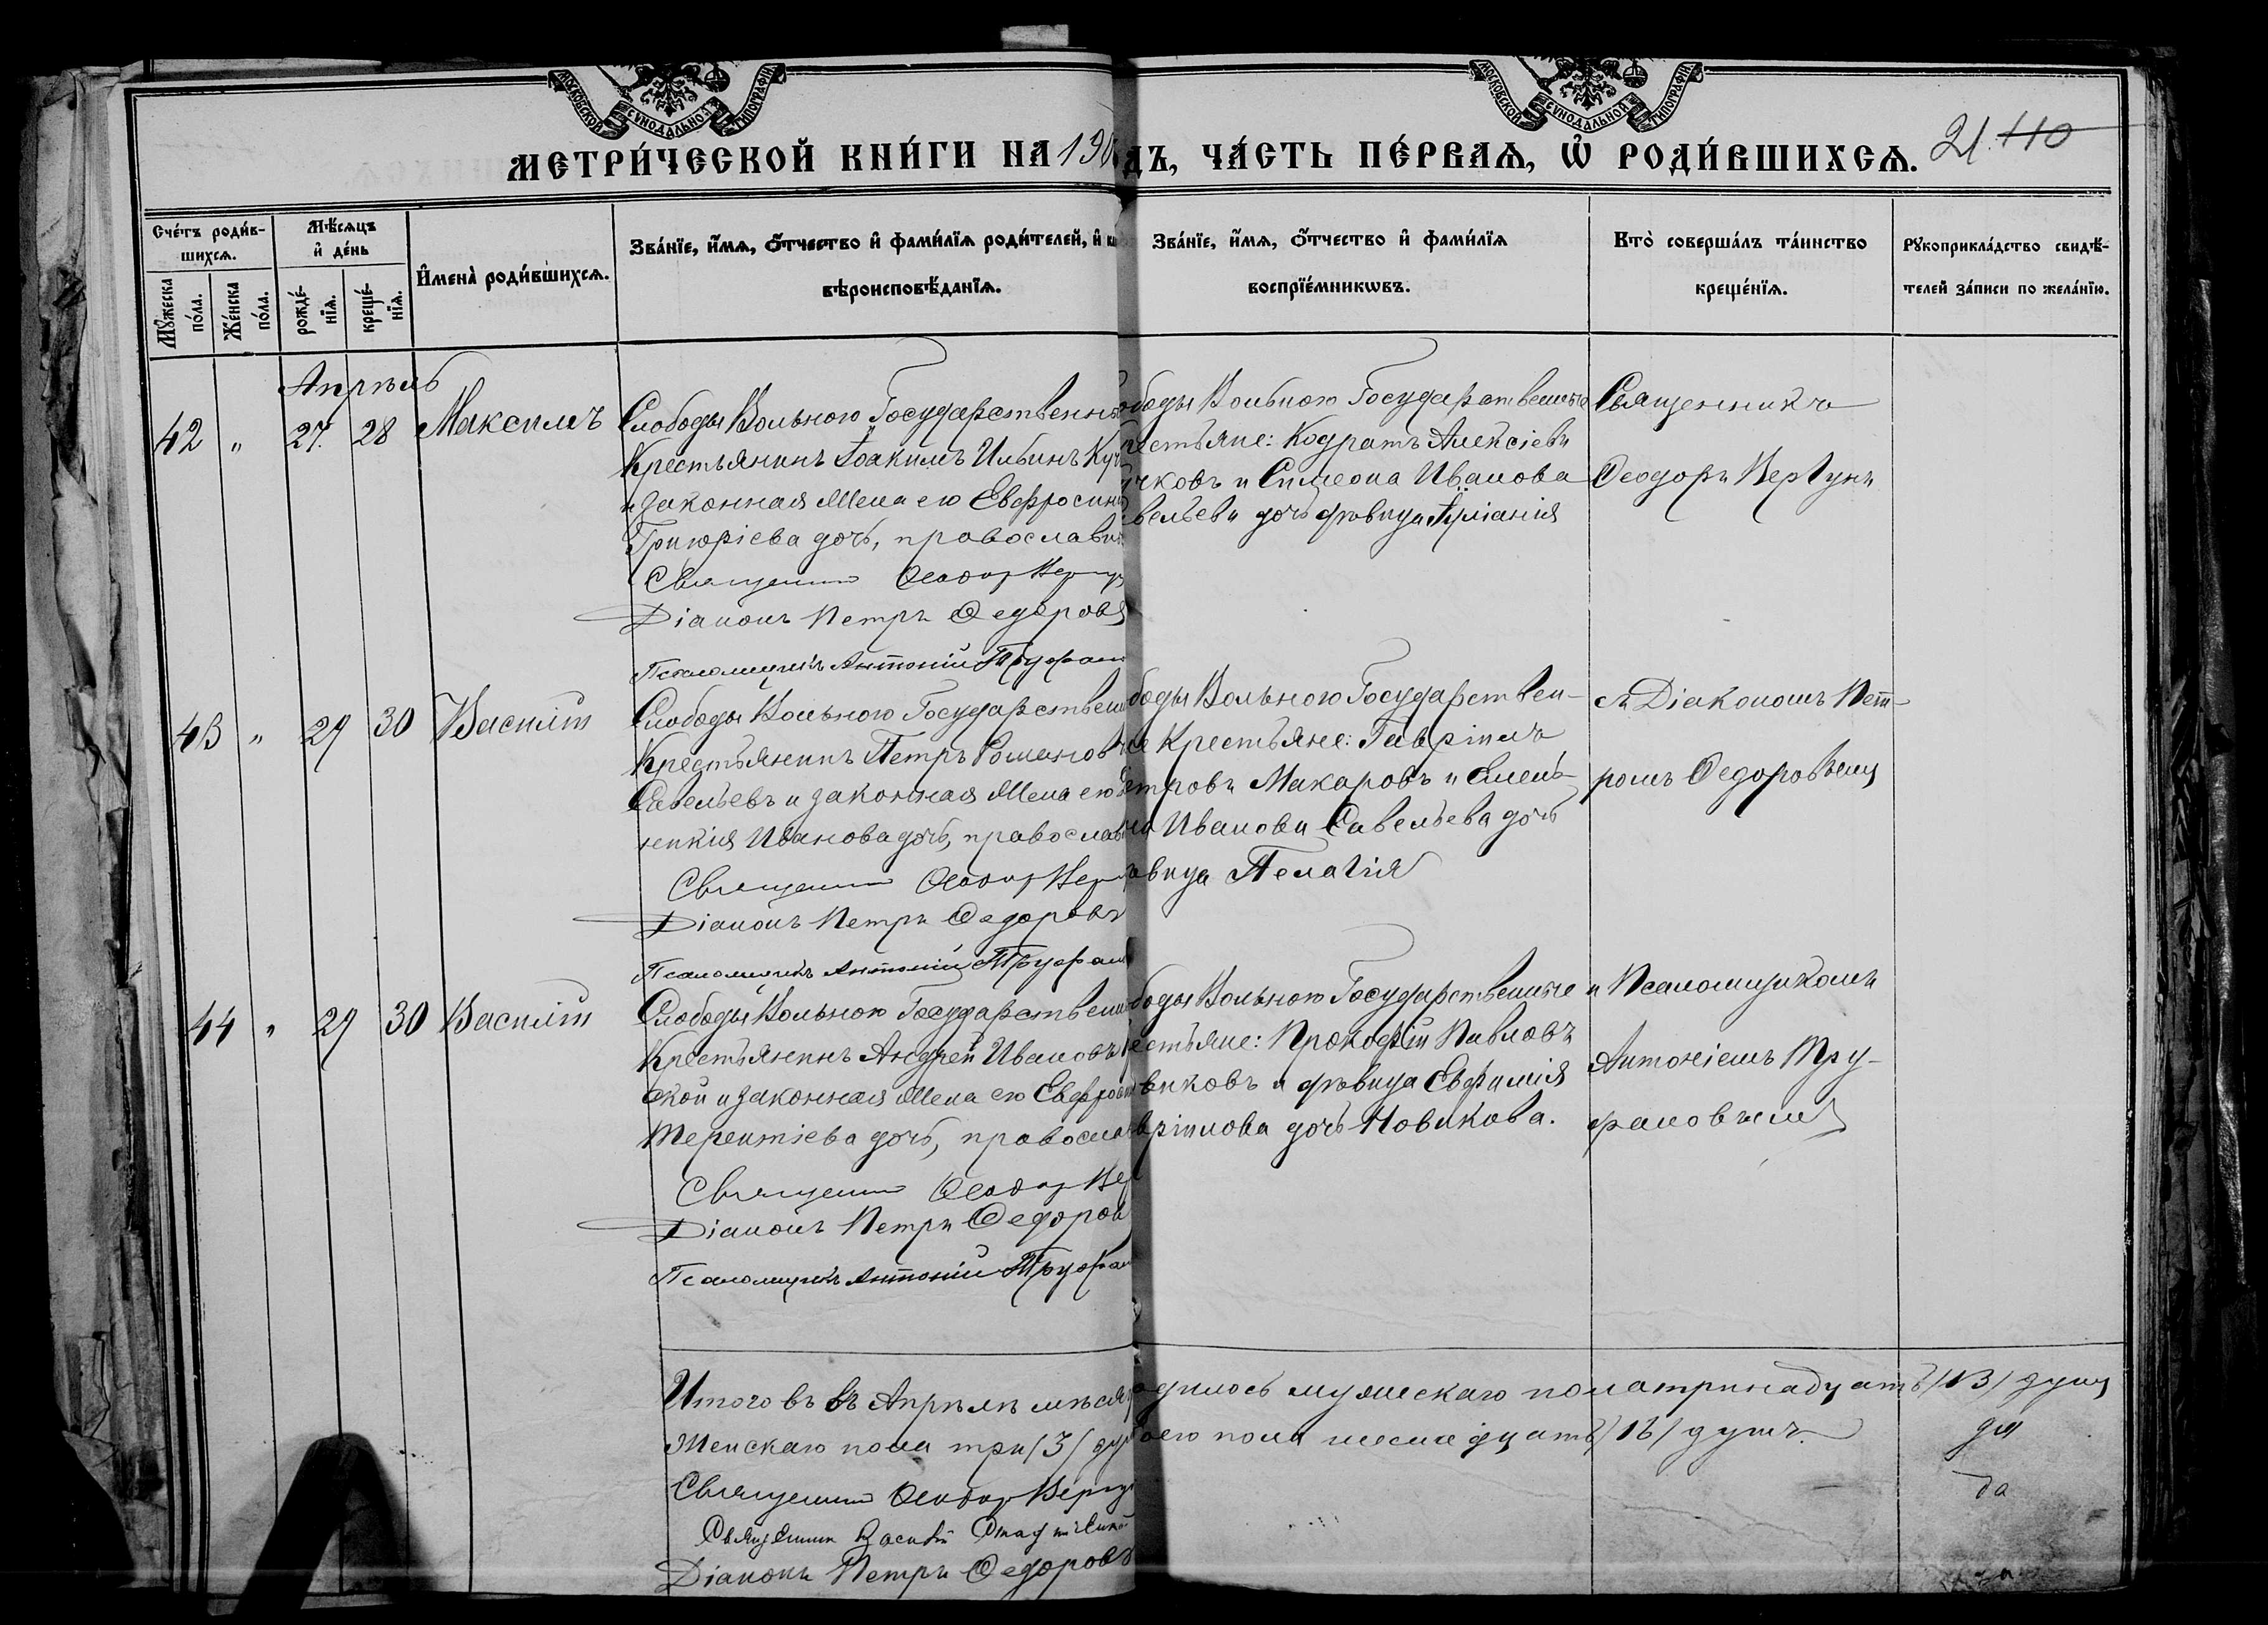 МОСКОВСКОЙ СѴНОДАЛЬНОЙ ТИПОГРАФІИ
МОСКОВСКОЙ СѴНОДАЛЬНОЙ ТИПОГРАФІИ
МЕТРИ́ЧЕСКОЙ КНИ́ГИ НА 190
ДЪ, ЧА́СТЬ ПЕ́РВАѦ, Ѽ РОДИ́ВШИХСѦ.
21 110
Сче́тъ роди́в-
шихсѧ.
Мꙋ́жеска по́ла.
Же́нска по́ла.
Мѣ́сѧцъ
и҆ де́нь
рожде́-нїѧ.
креще́-нїѧ.
И҆мена̀ роди́вшихсѧ.
Зва́нїе, и҆́мѧ, ѻ҆́тчество и҆ фами́лїѧ роди́телей, и҆
вѣроисповѣ́данїѧ.
Зва́нїе, и҆́мѧ, ѻ҆́тчество и҆ фами́лїѧ
воспрїе́мникѡвъ.
Кто̀ соверша́лъ та́инство
креще́нїѧ.
Рꙋкоприкла́дство свидѣ́-
телей за́писи по жела́нїю.
Апрѣль
42 " 27 28 Максимъ
Слободы Вольного Государственн
Крестьянинъ Іоакимъ Ильинъ Куч
и законная жена его Евфросин
Григоріева дочь, православн
Священникъ Ѳеодоръ Верг
Діаконъ Петръ Ѳедоровъ
Псаломщикъ Антоній Труфан
боды Вольного Государственные
рестьяне: Кодратъ Алексіевъ
чковъ и Симеона Иванова
вельевъ дочь дѣвица Іуліанія
Священникъ
Ѳеодоръ Вергунъ
43 " 29 30 Василій
Слободы Вольного Государствен
Крестьянинъ Петръ Романовъ
Савельевъ и законная жена его
никія Иванова дочь, православ
Священникъ Ѳеодоръ Вер
Діаконъ Петръ Ѳедоровъ
Псаломщикъ Антоній Труфан
боды Вольного Государствен-
ые Крестьяне: Гавріилъ
етровъ Макаровъ и
на Иванова Савельева дочь
вица Пелагія
съ Діакономъ Пет-
ромъ Ѳедоровымъ
44 " 29 30 Василій
Слободы Вольного Государствен
Крестьянинъ Андрей Ивановъ
ской и законная жена его Евфрос
Терентіева дочь, правосла
Священникъ Ѳеодоръ Вер
Діаконъ Петръ Ѳедоров
Псаломщикъ Антоній Труфан
боды Вольного Государственные
естьяне: Прокофій Павловъ
виковъ и дѣвица Евфимія
вріилова дочь Новикова.
и Псаломщикомъ
Антоніемъ Тру-
фановымъ
Итого въ въ Апрѣлѣ мѣсяц
одилось мужескаго пола тринадцать /13/ душ
Женскаго пола три /3/ ду
оего пола шеснадцать /16/ душъ.
Священникъ Ѳеодоръ Вергу
Священникъ Василій
Діаконъ Петръ Ѳедоровъ
да